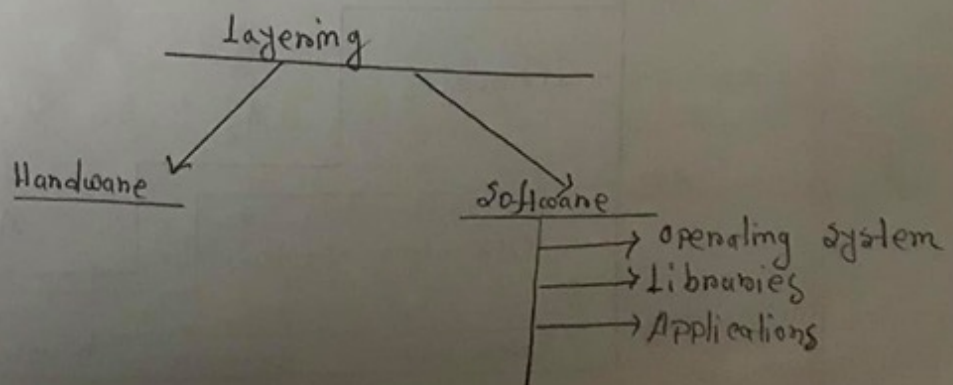 Layering
Hardware
Software
Operating System
Libraries
Applications